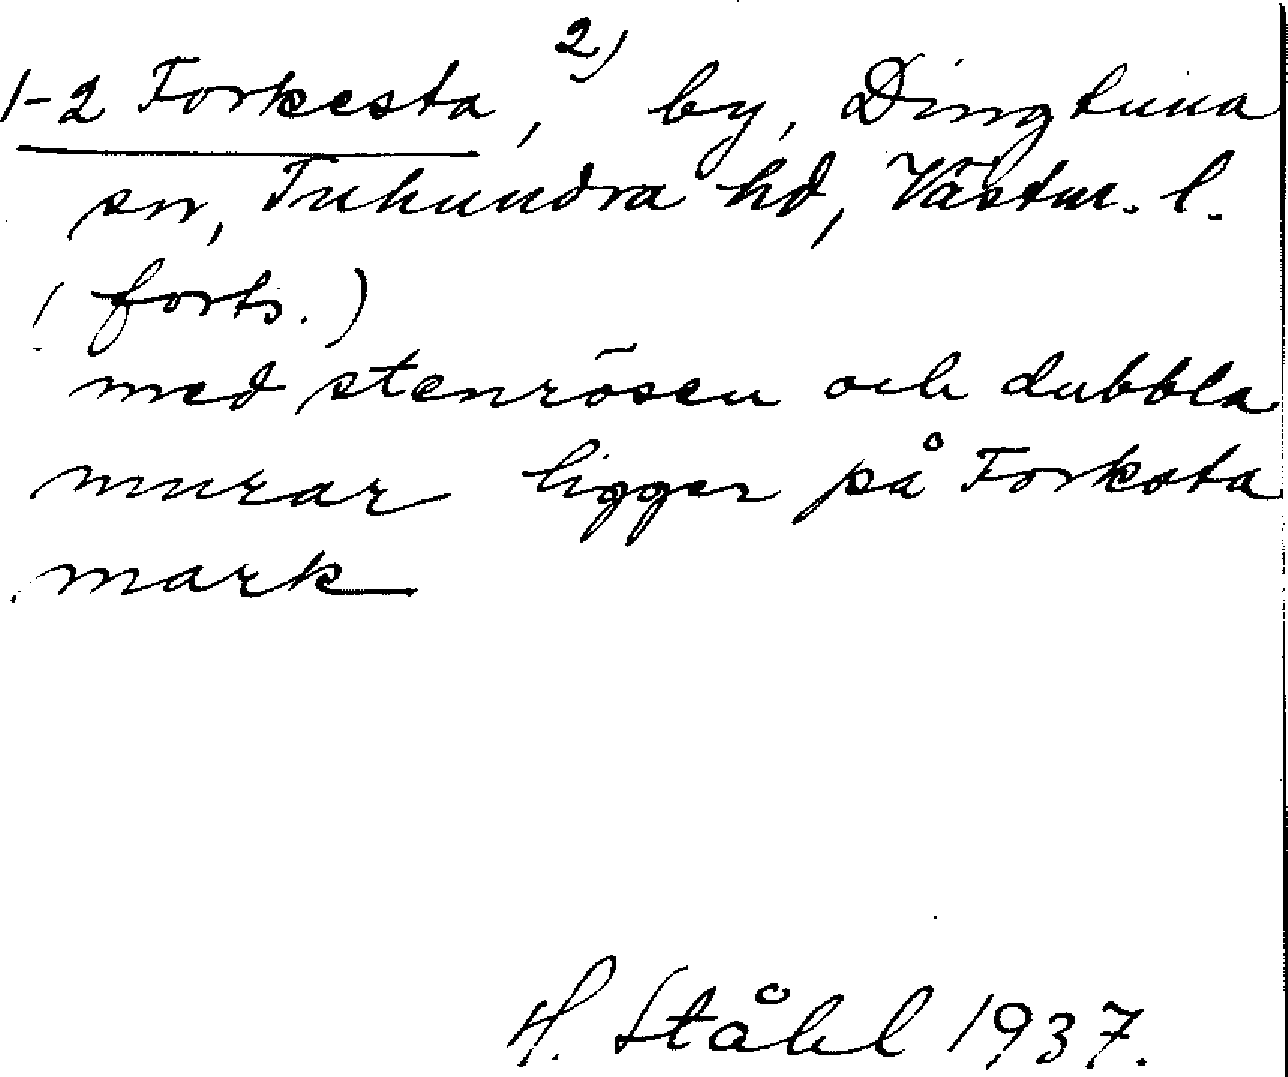 1-2 Forkesta, 2) by, Dingtuna
sn, Tuhundra hd, Västm. l.
(forts.)
med stenrösen och dubbla
murar ligger på Forksta
mark
H. Ståhl 1937.